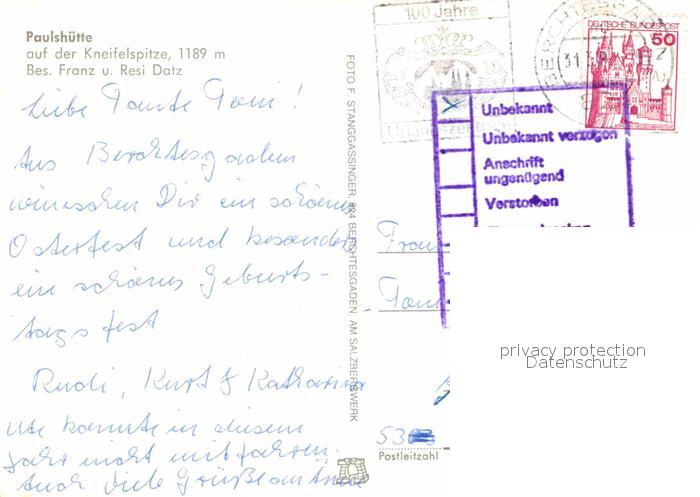 Paulshütte
auf der Kneifelspitze, 1189 m
Bes. Franz u. Resi Datz
Liebe Tante Toni!
Aus Berchtesgaden
wünschen Dir ein schönes
Osterfest und besonders
ein schönes Geburts-
tagsfest
Rudi, Kurt & Katharina
Ute konnte in diesem
Jahr nicht mitfahren.
Auch viele Grüße an
FOTO F. STANGGASSINGER, 824 BERCHTESGADEN, AM SALZBERGWERK
100 Jahre
BERCHTESGA
DEUTSCHE BUNDESPOST
50
Unbekannt
Unbekannt verzogen
Anschrift
ungenügend
Verstorben
Frau
53
Postleitzahl
privacy protection
Datenschutz